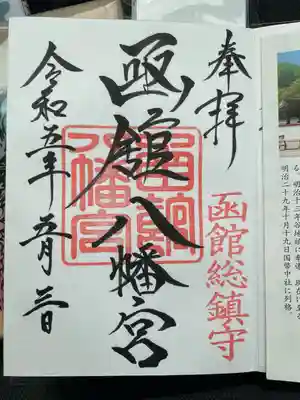 奉拝
函館総鎮守
函館八幡宮
令和五年五月三日
明治二十九年十月十九日国幣中社に列格。